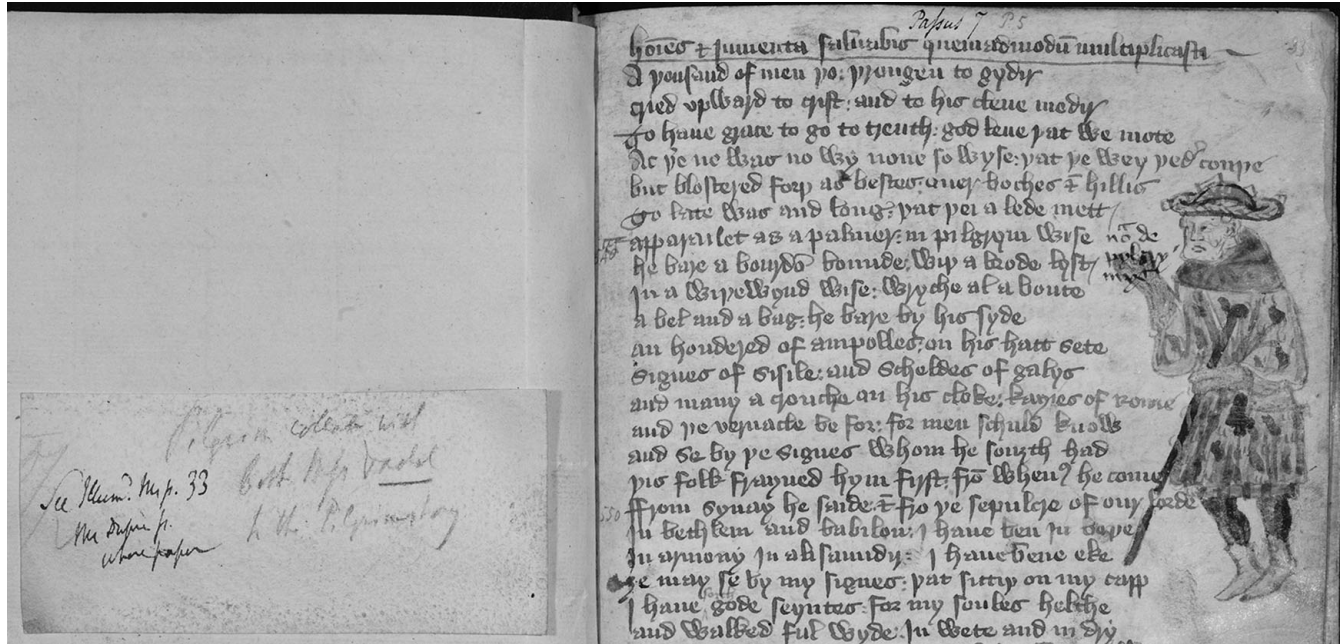 Pilgrim collate with
both Mss
See Illumd. Ms p. 33
Passus 7 P 5
hoīes & iumenta saluabis quemadmodū multiplicasti
A þousand of men þo: þrongen to gydir
cried vpward to crist: and to his clene modir
To haue grace to go to treuth: god leue þat we mote
Ac þe ne was no wy none so wyse: þat þe wey þedʾ couþe
but blostered forþ as bestes: ouer boches & hillis
To late was and long: þat þei a lede mett
apparailet as a palmer: in pilgrym wise
he bare a bourdō bounde: wiþ a brode lyst
In a wiþewynd wise: wryþe al a boute
a bel and a bag: he bare by his syde
an hondered of ampolles: on his hatt sete
signes of sisile: and scheldes of galys
and many a crouche on his cloke: kayes of rome
and þe vernacle be for: for men schuld know
and se by þe signes whom he souȝth had
þis folk frayned hym first: frō whenʾ he come
ffrom synay he saide: & fro þe sepulcre of our lorde
In bethlem and babilon: I haue ben in boþe
In armony in alisaundir: I haue bene eke
ȝe may se by my signes: þat sittiþ on my capp
I haue gode seyntes: for my soules helthe
and walked ful wyde: In wete and in dry